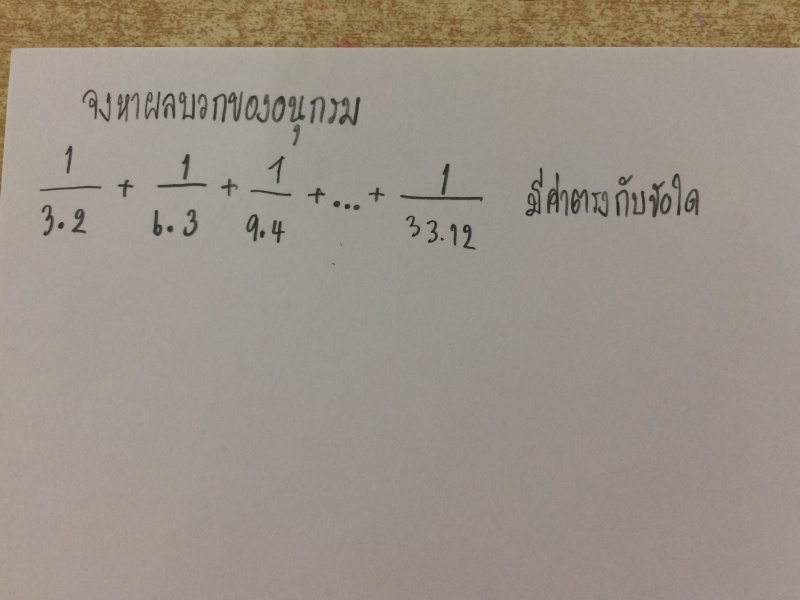 จงหาผลบวกของอนุกรม
1/3.2 + 1/6.3 + 1/9.4 + ... + 1/33.12 มีค่าตรงกับข้อใด